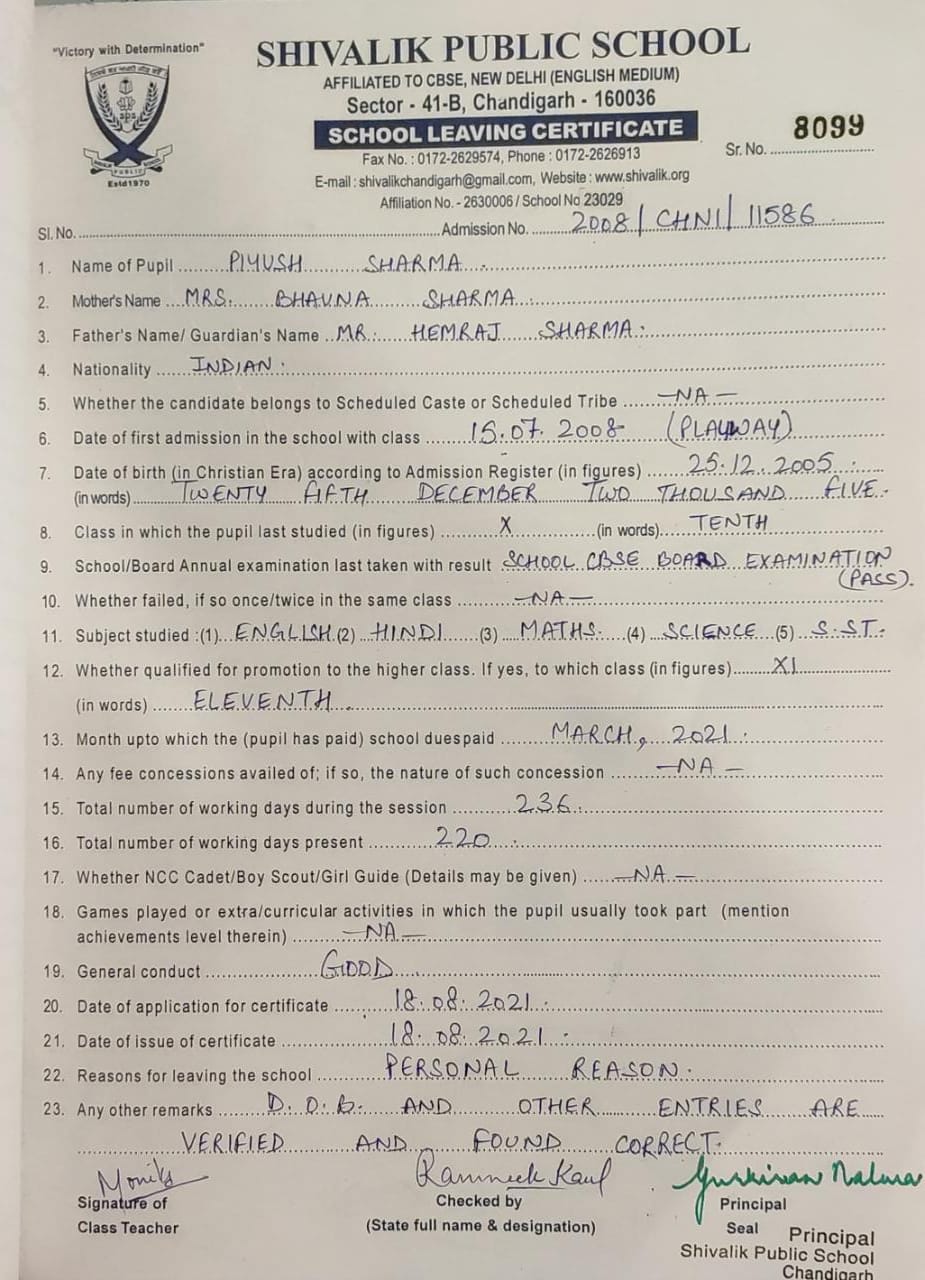 "Victory with Determination"
SHIVALIK PUBLIC SCHOOL
AFFILIATED TO CBSE, NEW DELHI (ENGLISH MEDIUM)
Sector - 41-B, Chandigarh - 160036
SCHOOL LEAVING CERTIFICATE
Estd1970
Fax No. : 0172-2629574, Phone : 0172-2626913
Sr. No. 8099
E-mail : shivalikchandigarh@gmail.com, Website : www.shivalik.org
Affiliation No. - 2630006 / School No 23029
Sl. No. Admission No. 2008/CHNI/11586
1. Name of Pupil PIYUSH SHARMA
2. Mother's Name MRS. BHAVNA SHARMA
3. Father's Name/ Guardian's Name MR. HEMRAJ SHARMA
4. Nationality INDIAN
5. Whether the candidate belongs to Scheduled Caste or Scheduled Tribe -NA-
6. Date of first admission in the school with class 15.07.2008 (PLAYWAY)
7. Date of birth (in Christian Era) according to Admission Register (in figures) 25.12.2005
(in words) TWENTY FIFTH DECEMBER TWO THOUSAND FIVE
8. Class in which the pupil last studied (in figures) X (in words) TENTH
9. School/Board Annual examination last taken with result SCHOOL CBSE BOARD EXAMINATION
(PASS).
10. Whether failed, if so once/twice in the same class -NA-
11. Subject studied :(1) ENGLISH (2) HINDI (3) MATHS. (4) SCIENCE (5) S.ST.
12. Whether qualified for promotion to the higher class. If yes, to which class (in figures) XI
(in words) ELEVENTH
13. Month upto which the (pupil has paid) school duespaid MARCH, 2021.
14. Any fee concessions availed of; if so, the nature of such concession -NA-
15. Total number of working days during the session 236.
16. Total number of working days present 220
17. Whether NCC Cadet/Boy Scout/Girl Guide (Details may be given) -NA-
18. Games played or extra/curricular activities in which the pupil usually took part (mention
achievements level therein) -NA-
19. General conduct GOOD
20. Date of application for certificate 18.08.2021.
21. Date of issue of certificate 18.08.2021.
22. Reasons for leaving the school PERSONAL REASON.
23. Any other remarks D.O.B. AND OTHER ENTRIES ARE
VERIFIED AND FOUND CORRECT.
Ramneek Kaul
Signature of
Class Teacher
Checked by
(State full name & designation)
Principal
Seal
Principal
Shivalik Public School
Chandigarh